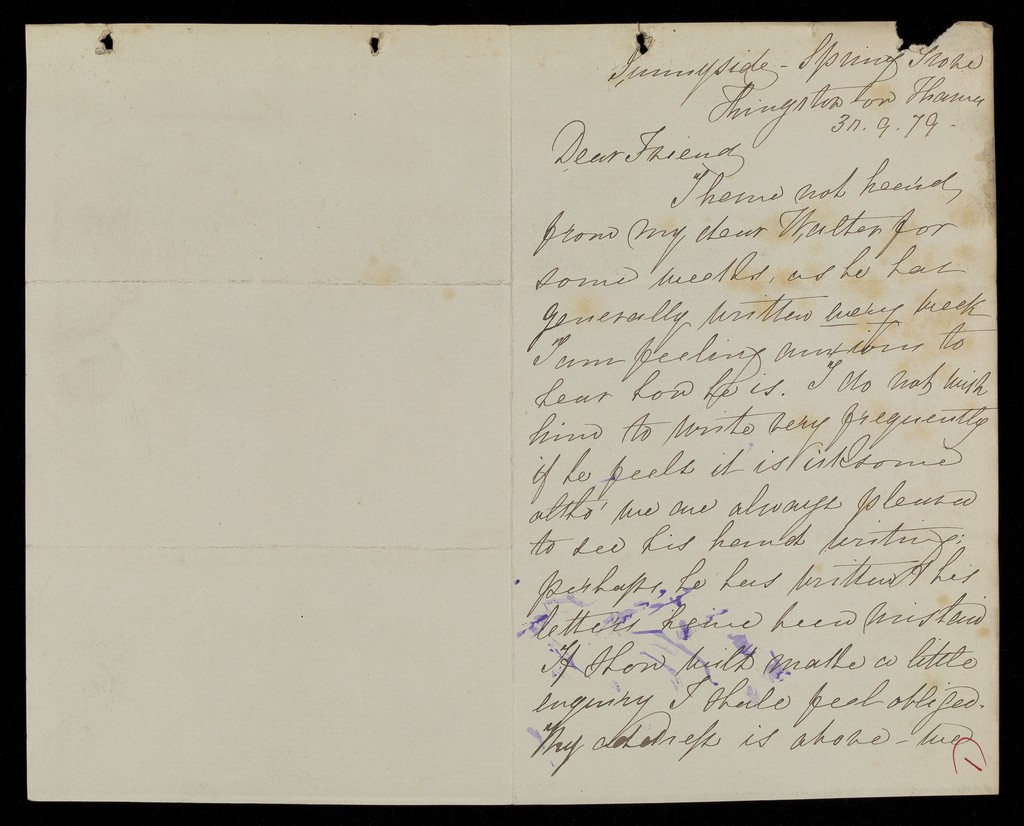 Sunnyside - Spring Grove
Kingston on Thames
30. 9. 79 -
Dear Friend
I have not heard
from my dear Walter for
some weeks, as he has
generally written every week
I am feeling anxious to
hear how he is. I do not wish
him to write very frequently
if he feels it is irksome
altho' we are always pleased
to see his hand writing:
perhaps, he has written & his
letters have been mislaid
If thou wilt make a little
enquiry I shall feel obliged.
My address is above - we